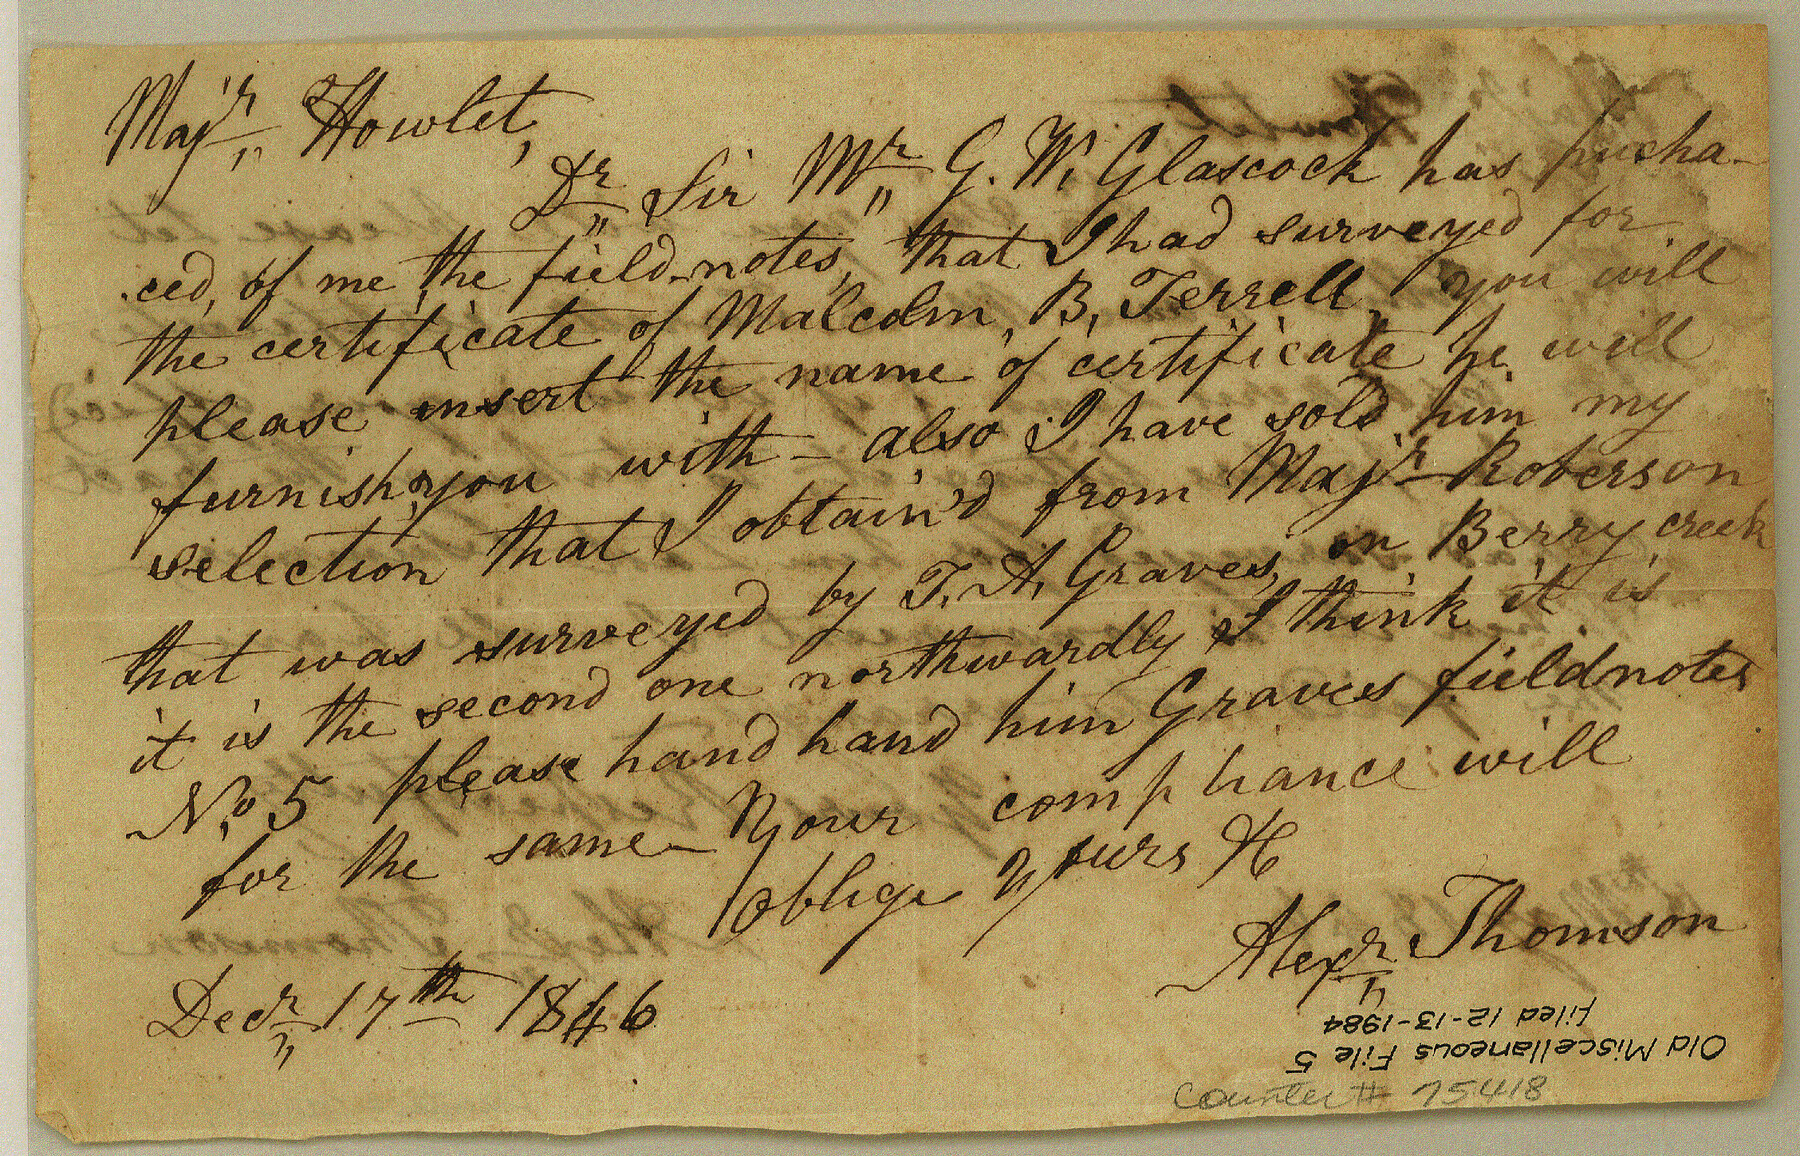 Majr Howlet,
Dr Sir Mr G. W. Glascock has
ced, of me the field-notes, that I had surveyed for
the certificate of Malcolm, B, Terrell you will
please insert the name of certificate he will
furnish, you with – also I have sold him my
selection that I obtain'd from Majr Roberson
that was surveyed by T. A, Graves, on Berry creek
it is the second one northwardly I think it is
No. 5 please hand hand him Graves fieldnotes
for the same – Your compliance will
oblige yours &
Alexr Thomson
Decr 17th 1846
Old Miscellaneous File 5
filed 12-13-1984
counter # 75418